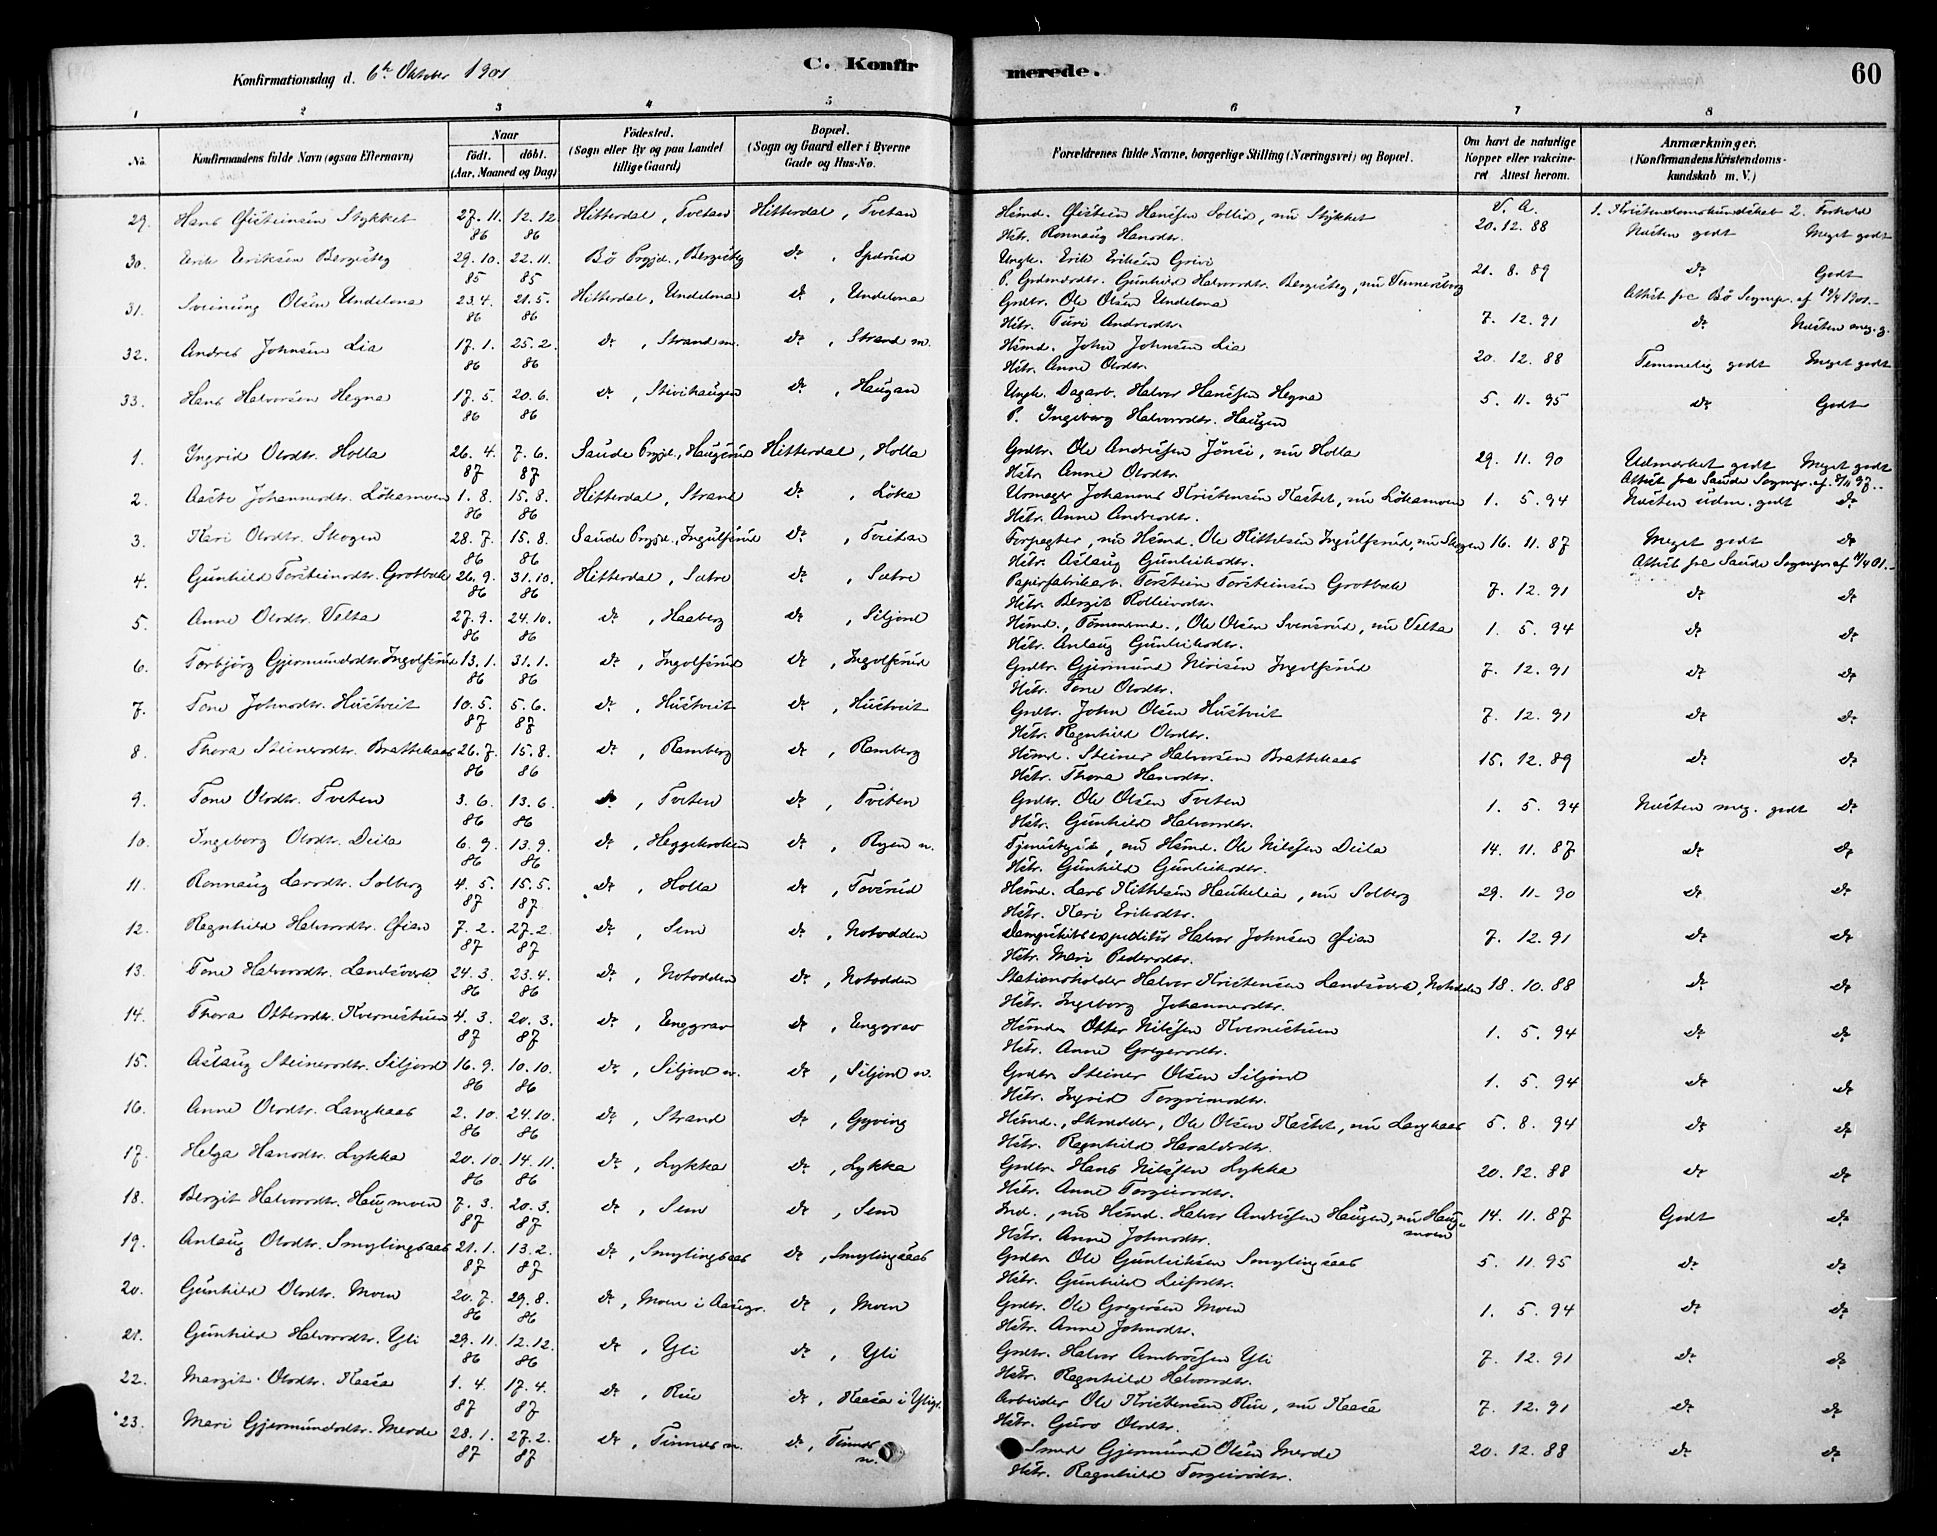 Konfirmationsdag d. 6te Oktober 1901
C. Konfirmerede.
60
1 2 3 4 5 6 7 8
No. Konfirmandens fulde Navn (ogsaa Efternavn) Naar født. døbt. (Aar, Maaned og Dag) Födested. (Sogn eller By og paa Landet tillige Gaard) Bopæl. (Sogn og Gaard eller i Byerne Gade og Hus-No. Forældrenes fulde Navne, borgerlige Stilling (Næringsvei) og Bopæl. Om havt de naturlige Kopper eller vakcineret Attest herom. Anmærkninger. (Konfirmandens Kristendomskundskab m. V.)
29. Hans Østeinsen Stykket 27.11.86 12.12.86 Hitterdal, Tvetan Hitterdal, Tvetan Hsmd. Østein Hansen Sollid, nu Stykket V. A. 20.12.88 1. Kristendomskundskab 2. Forhold
Hstr. Ronnaug Hansdtr. Næsten godt Meget godt
30. Erik Eriksen Bergesteg 29.10.85 22.11.85 Bø Prgjd., Bergesteg do, Spærud Ungk. Erik Eriksen Grivi 21.8.89 do Godt
P. Gdmdsdtr. Gunhild Halvorsdtr. Bergesteg, nu Attest fra Bø Sognepr. af 19/4 1901.
31. Sveinung Olsen Undelona 23.4.86 21.5.86 Hitterdal, Undelona do, Undelona Grdbr. Ole Olsen Undelona 7.12.91 do Næsten meg. g.
Hstr. Turi Andresdtr.
32. Andres Johnsen Lia 17.1.86 25.2.86 do, Strand m. do, Strand m. Hsmd. John Johnsen Lia 20.12.88 Temmelig godt Meget godt
Hstr. Anne Olsdtr.
33. Hans Halvorsen Hegna 17.5.86 20.6.86 do, Stivihaugen do, Haugan Ungk. Dagarb. Halvor Hansen Hegna 5.11.95 do Godt
P. Ingeborg Halvorsdtr. Haugen
1. Ingrid Olsdtr. Holla 26.4.87 7.6.87 Saude Prgjd., Haugsrud Hitterdal, Holla Grdbr. Ole Andersen Jønsi, nu Holla 29.11.90 Udmærket godt Meget godt
Hstr. Anne Olsdtr. Attest fra Saude Sognepr. af 8/11 97.
2. Aaste Johannesdtr. Lökamoen 1.8.86 15.8.86 Hitterdal, Strand do, Löka Urmager Johannes Kristensen Kastet, nu Lökamoen 1.5.94 Næsten udm. godt do
Hstr. Anne Andresdtr.
3. Kari Olsdtr. Skogen 28.7.86 15.8.86 Saude Prgjd., Ingulfsrud do, Tveitan Forpagter, nu Hsmd. Ole Kittelsen Ingulfsrud, nu Skogen 16.11.87 Meget godt do
Hstr. Aslaug Gunleiksdtr. Attest fra Saude Sognepr. af 4/4 01.
4. Gunhild Torsteinsdtr. Grotbæk 26.9.86 31.10.86 Hitterdal, Sætre do, Sætre Papirfabrikarb. Torstein Torsteinsen Grotbæk 7.12.91 do do
Hstr. Bergit Rolleivsdtr.
5. Anne Olsdtr. Velta 27.9.86 24.10.86 do, Haaberg do, Siljord Hsmd., Tömmermd., Ole Olsen Svensrud, nu Velta 1.5.94 do do
Hstr. Anlaug Gunleiksdtr.
6. Torbjörg Gjermundsdtr. Ingolfsrud 13.1.86 31.1.86 do, Ingolfsrud do, Ingolfsrud Grdbr. Gjermund Nirisen Ingolfsrud 7.12.91 do do
Hstr. Tone Olsdtr.
7. Tone Johnsdtr. Hustveit 10.5.87 5.6.87 do, Hustveit do, Hustveit Grdbr. John Olsen Hustveit 7.12.91 do do
Hstr. Ragnhild Olsdtr.
8. Thora Steinersdtr. Brattekaas 26.7.86 15.8.86 do, Ramberg do, Ramberg Hsmd. Steiner Halvorsen Brattekaas 15.12.89 do do
Hstr. Thora Hansdtr.
9. Tone Olsdtr. Tveten 3.6.86 13.6.86 do, Tveten do, Tveten Grdbr. Ole Olsen Tveten 1.5.94 Næsten meg. godt do
Hstr. Gunhild Halvorsdtr.
10. Ingeborg Olsdtr. Deila 6.9.86 13.9.86 do, Heggekroken do, Ryen n. Tjenestegut, nu Hsmd. Ole Nilssen Deila 14.11.87 do do
Hstr. Gunhild Gunleiksdtr.
11. Ronnaug Larsdtr. Solberg 4.5.87 15.5.87 do, Holla do, Tovsrud Hsmd. Lars Kittelsen Haukelia, nu Solberg 29.11.90 do do
Hstr. Kari Eriksdtr.
12. Ragnhild Halvorsdtr. Øian 7.2.87 27.2.87 do, Sem do, Notodden Dampskibsexpeditør Halvor Johnsen Øian 7.12.91 do do
Hstr. Mari Pedersdtr.
13. Tone Halvorsdtr. Landsverk 24.3.86 23.4.86 do, Notodden do, Notodden Stationsholder Halvor Kristensen Landsverk, Notodden 18.10.88 do do
Hstr. Ingeborg Johannesdtr.
14. Thora Ottersdtr. Kvernstuen 4.3.87 20.3.87 do, Enggrav do, Enggrav Hsmd. Otter Nilssen Kvernstuen 1.5.94 do do
Hstr. Anne Gregersdtr.
15. Aslaug Steinersdtr. Siljord 16.9.86 10.10.86 do, Siljord n. do, Siljord n. Grdbr. Steiner Olsen Siljord 1.5.94 do do
Hstr. Ingrid Torgrimsdtr.
16. Anne Olsdtr. Langkaas 2.10.86 24.10.86 do, Strand do, Gyving Hsmd., Skrædder, Ole Olsen Kastet, nu Langkaas 5.8.94 do do
Hstr. Ragnhild Haraldsdtr.
17. Helga Hansdtr. Lykka 20.10.86 14.11.86 do, Lykka do, Lykka Grdbr. Hans Nilssen Lykka 20.12.88 do do
Hstr. Anne Torgersdtr.
18. Bergit Halvorsdtr. Haugmoen 7.3.87 20.3.87 do, Sem do, Sem Ind., nu Hsmd. Halvor Andersen Haugen, nu Haugmoen 14.11.87 Godt do
Hstr. Anne Johnsdtr.
19. Anlaug Olsdtr. Smylingsaas 21.1.87 13.2.87 do, Smylingsaas do, Smylingsaas Grdbr. Ole Gunleiksen Smylingsaas 5.11.95 do do
Hstr. Gunhild Leifsdtr.
20. Gunhild Olsdtr. Moen 20.7.86 29.8.86 do, Moen i Aasegr. do, Moen Grdbr. Ole Gregersen Moen 1.5.94 do do
Hstr. Anne Johnsdtr.
21. Gunhild Halvorsdtr. Yli 29.11.86 12.12.86 do, Yli do, Yli Grdbr. Halvor Ambrosen Yli 7.12.91 do do
Hstr. Ragnhild Halvorsdtr.
22. Margit Olsdtr. Kaasa 1.4.87 17.4.87 do, Rue do, Kaasa i Yligr. Arbeider Ole Kristensen Rue, nu Kaasa 7.12.91 do do
Hstr. Guro Olsdtr.
23. Mari Gjermundsdtr. Merde 28.1.87 27.2.87 do, Tinnes n. do, Tinnes n. Smed Gjermund Olsen Merde 20.12.88 do do
Hstr. Ragnhild Torgeirsdtr.